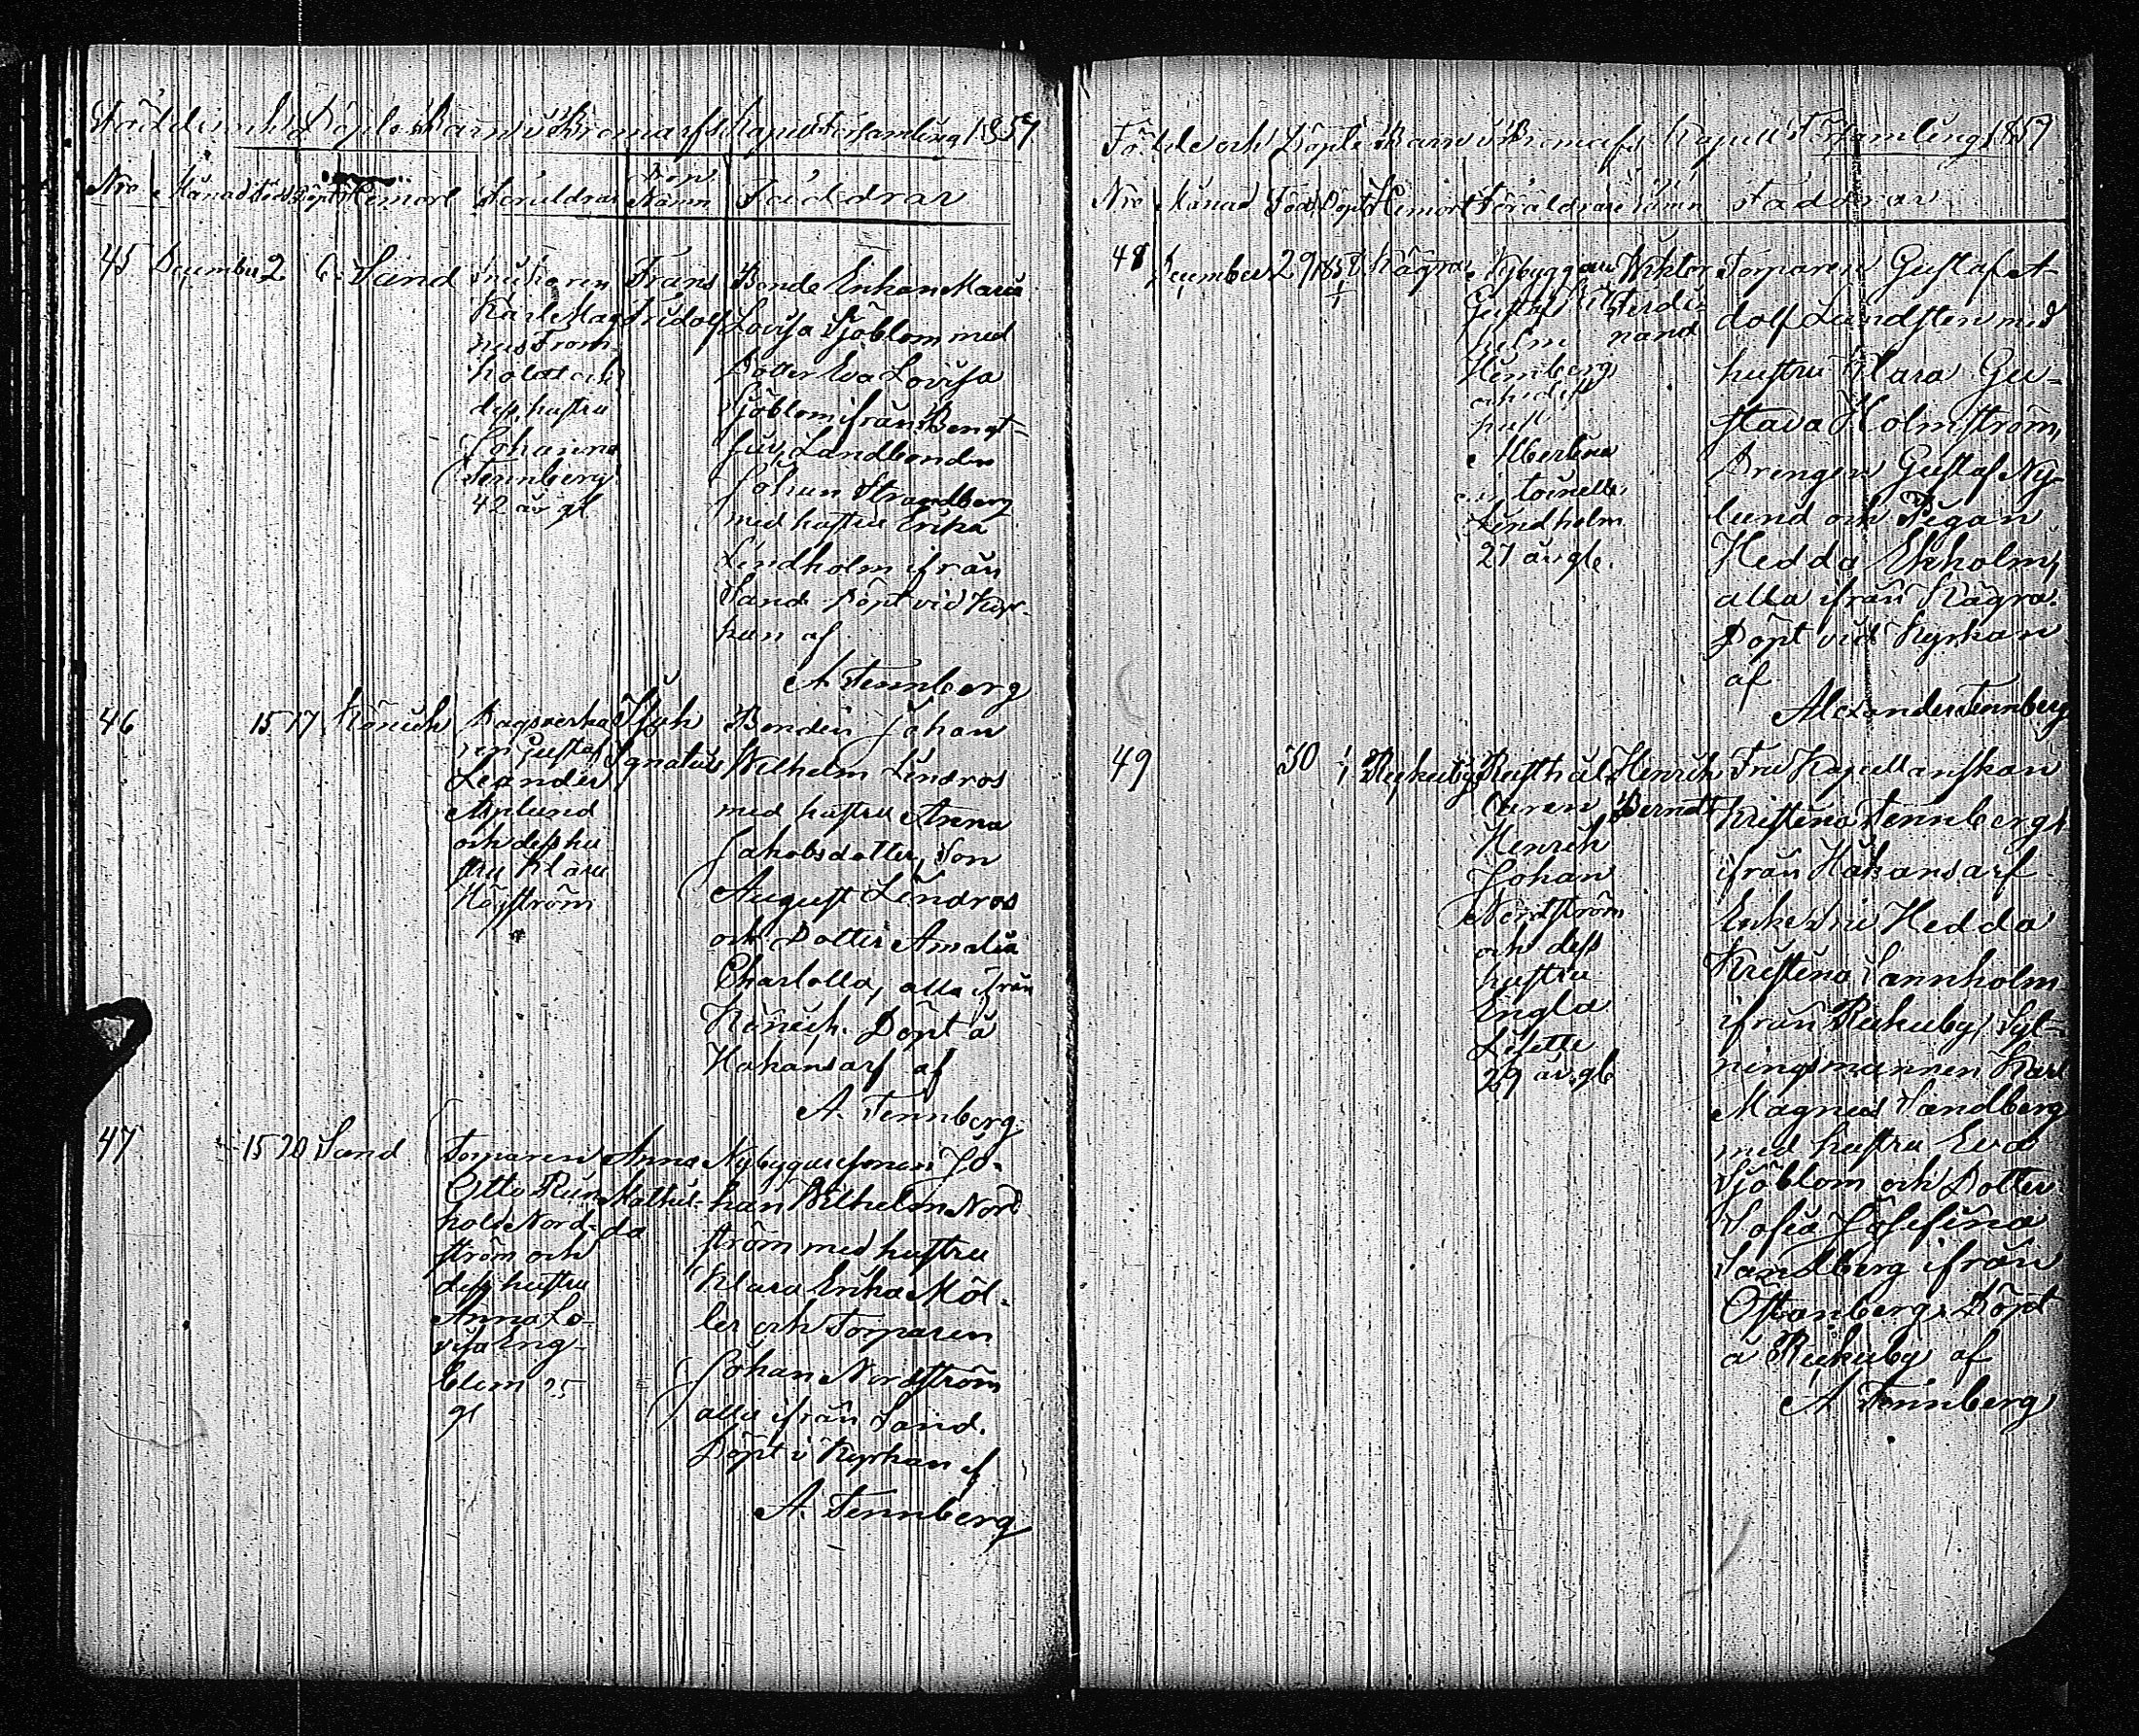 Födde och Döpte Barn i Bromarfs Kapell Församling 1857
Nro Månad Född Döpt Hemort Föräldrar Namn Faddrar
45 December 2 6 Sand
Karl Mag-
nus From-
holdt och
dess hustru
Johanna
Tennberg
42 år gl
Frans
Fridolf
Bonde Enkan Maria
Lovisa Sjöblom med
Dotter Eva Lovisa
Sjöblom ifrån Bengt-
Landbonden
Johan Strandberg
med hustru Erika
Lindholm ifrån
Sand Döpt vid Kyr-
kan af
A Tennberg
46 15 17
Gustaf
Leander
Asplund
och dess hu
stru Klara
Höjström
Ignatius
Bonden Johan
Wilhelm Lindros
med hustru Anna
Jakobsdotter, Son
August Lindros
och Dotter Amalia
Charlotta, alla ifrån
Döpt å
Håkansarf af
A. Tennberg
47 15 20 Sand
Torparen
Otto Rein-
hold Nord-
ström och
dess hustru
Anna Lo-
visa Eng-
blom 25
gl
Anna
Mathil-
da
Johan Wilhelm Nord
ström med hustru
Klara Erika Möl-
ler och Torparen
Johan Nordström
alla ifrån Sand.
Döpt i Kyrkan af
A. Tennberg
Födde och Döpte Barn i Bromarfs Kapell Församling 1857
Nro Månad Född Döpt Hemort Föräldrar Namn Faddrar
48 December 29 1858 Kägra
Nybyggaren
Gustaf Wil-
helm
Hemberg
och dess
hust
Albertina
Lindholm
27 år gl.
Wiktor
Ferdi-
nand
Torparen Gustaf A-
dolf Lundsten med
hustru Klara Gu-
stava Holmström,
Drengen Gustaf Ny-
lund och Pigan
Hedda Ekholm,
alla ifrån Kägra.
Döpt vid Kyrkan
af
Alexander Tennberg
49 30 Rekuby
Rusthål-
laren
Henrik
Johan
Nordström
och dess
hustru
Engla
Lisette
29 år gl
Henrik
Berndt
Fru Kapellanskan
Kristina Tennberg,
ifrån Håkansarf
Enkefru Hedda
Kristina Sannholm
ifrån Rekuby,
Karl
Magnus Sandberg
med hustru Eva
Sjöblom och Dotter
Sofia Josefina
Sandberg ifrån
Östanberg. Döpt
å Rekuby af
A Tennberg